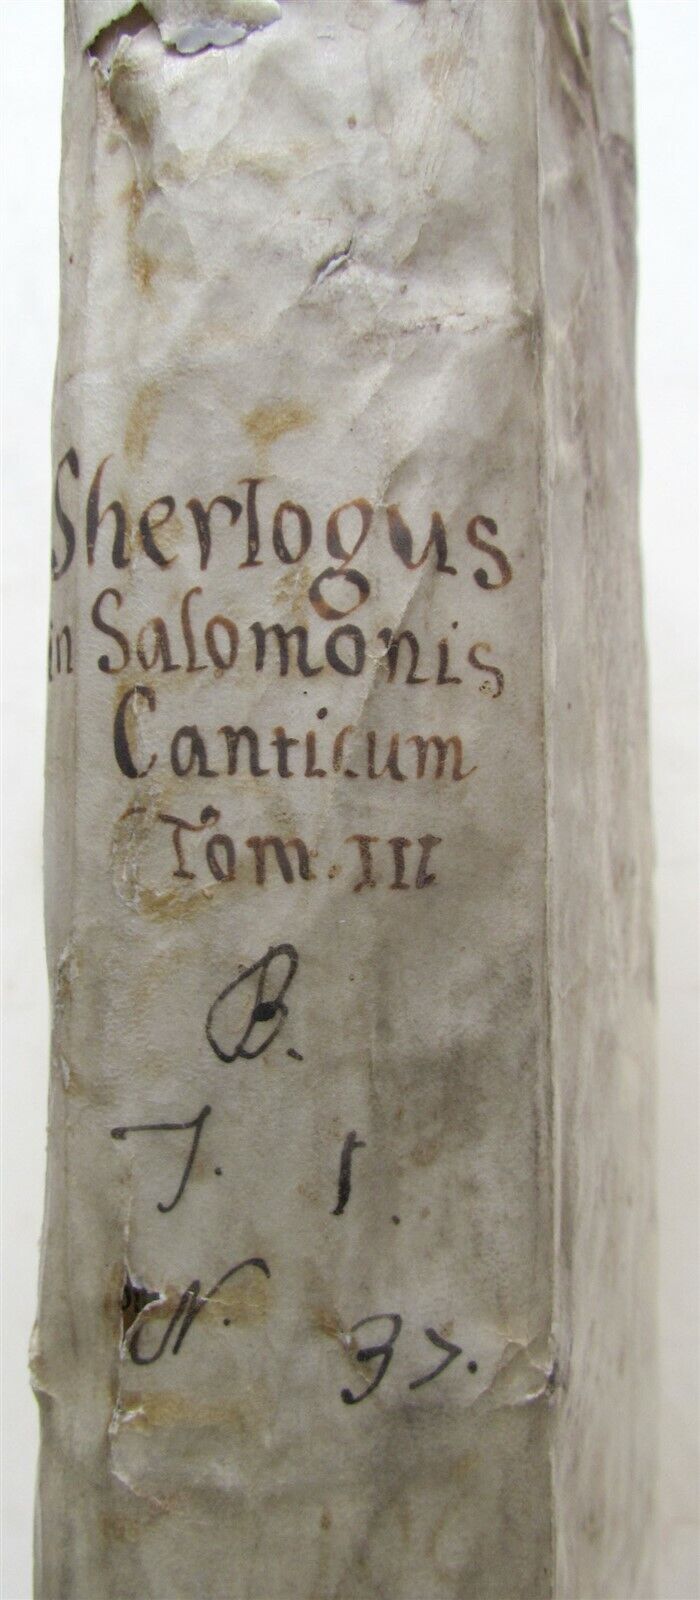 Sherlogus
in Salomonis
Canticum
Tom. III
B.
T. 1.
N. 37.